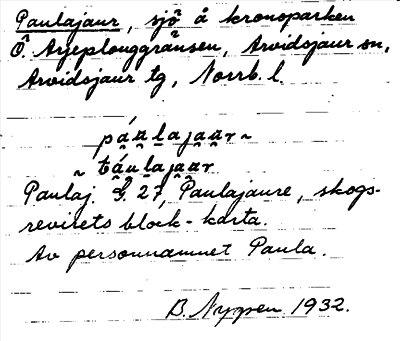 Paulajaur, sjö å kronoparken
Ö. Arjeplouggränsen, Arvidsjaur sn,
Arvidsjaur tg, Norrb. l.
páu̯lajau̯r ~
~ táu̯lajau̯r
Paulaj. G. 27, Paulajaure, skogs-
revirets block-karta.
Av personnamnet Paula.
B. Nygren 1932.